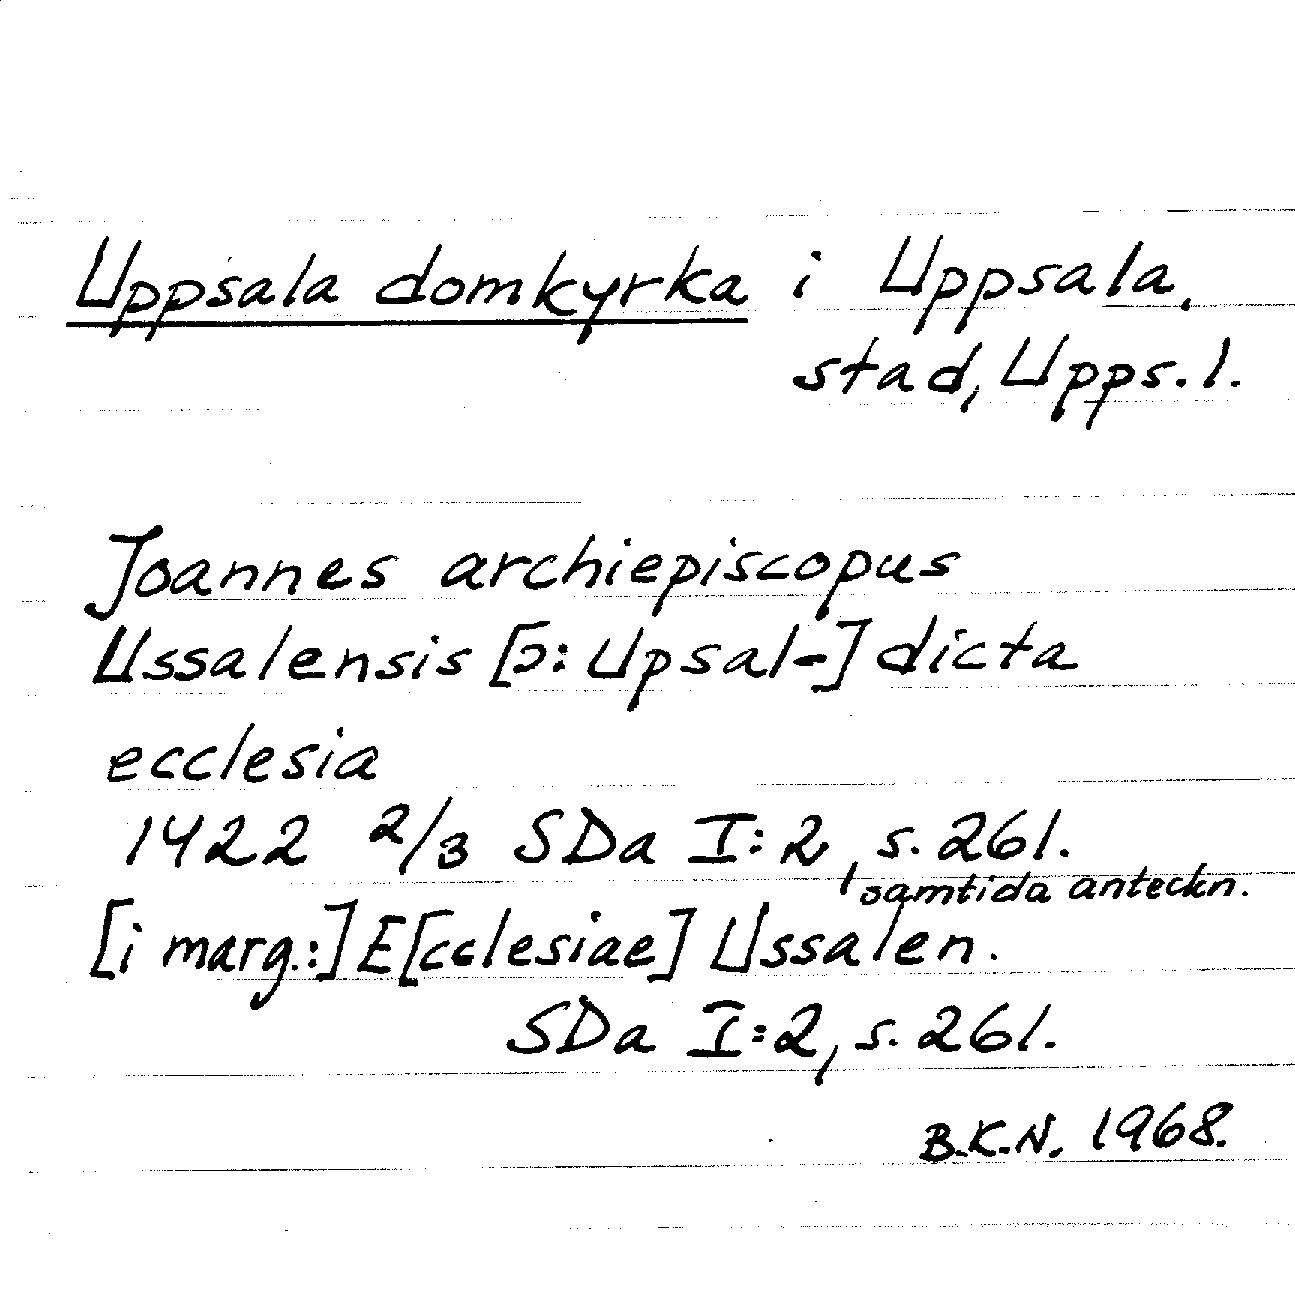 Uppsala domkyrka i Uppsala,
stad, Upps. l.
Joannes archiepiscopus
Ussalensis [ɔ: Upsal-] dicta
ecclesia
1422 2/3 SDa I:2, s. 261.
samtida anteckn.
[i marg.:] E[cclesiae] Ussalen.
SDa I:2, s. 261.
B.K.N. 1968.